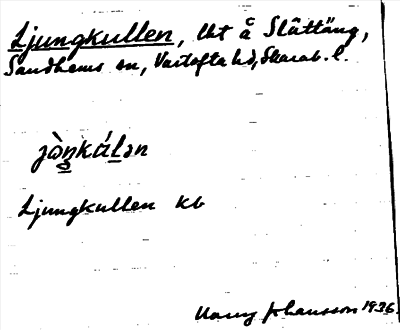 Ljungkullen, lht å Slättäng,
Sandhems sn, Vartofta hd, Skarab. l.
jὼŋkúlən
Ljungkullen kb
Harry Johansson 1936.